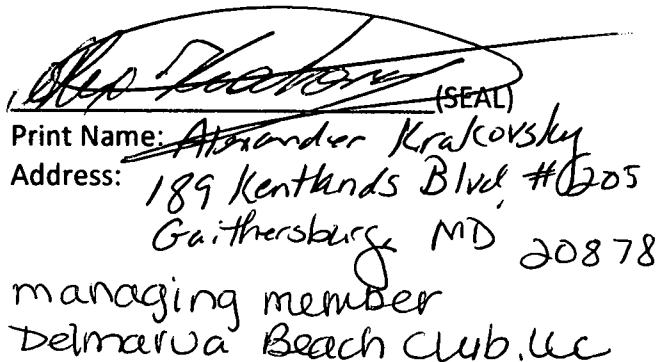 (SEAL)
Print Name: Alexander Krakovsky
Address: 189 Kentlands Blvd, #6205
Gaithersburg, MD 20878
managing member
Delmarva Beach Club, LLC